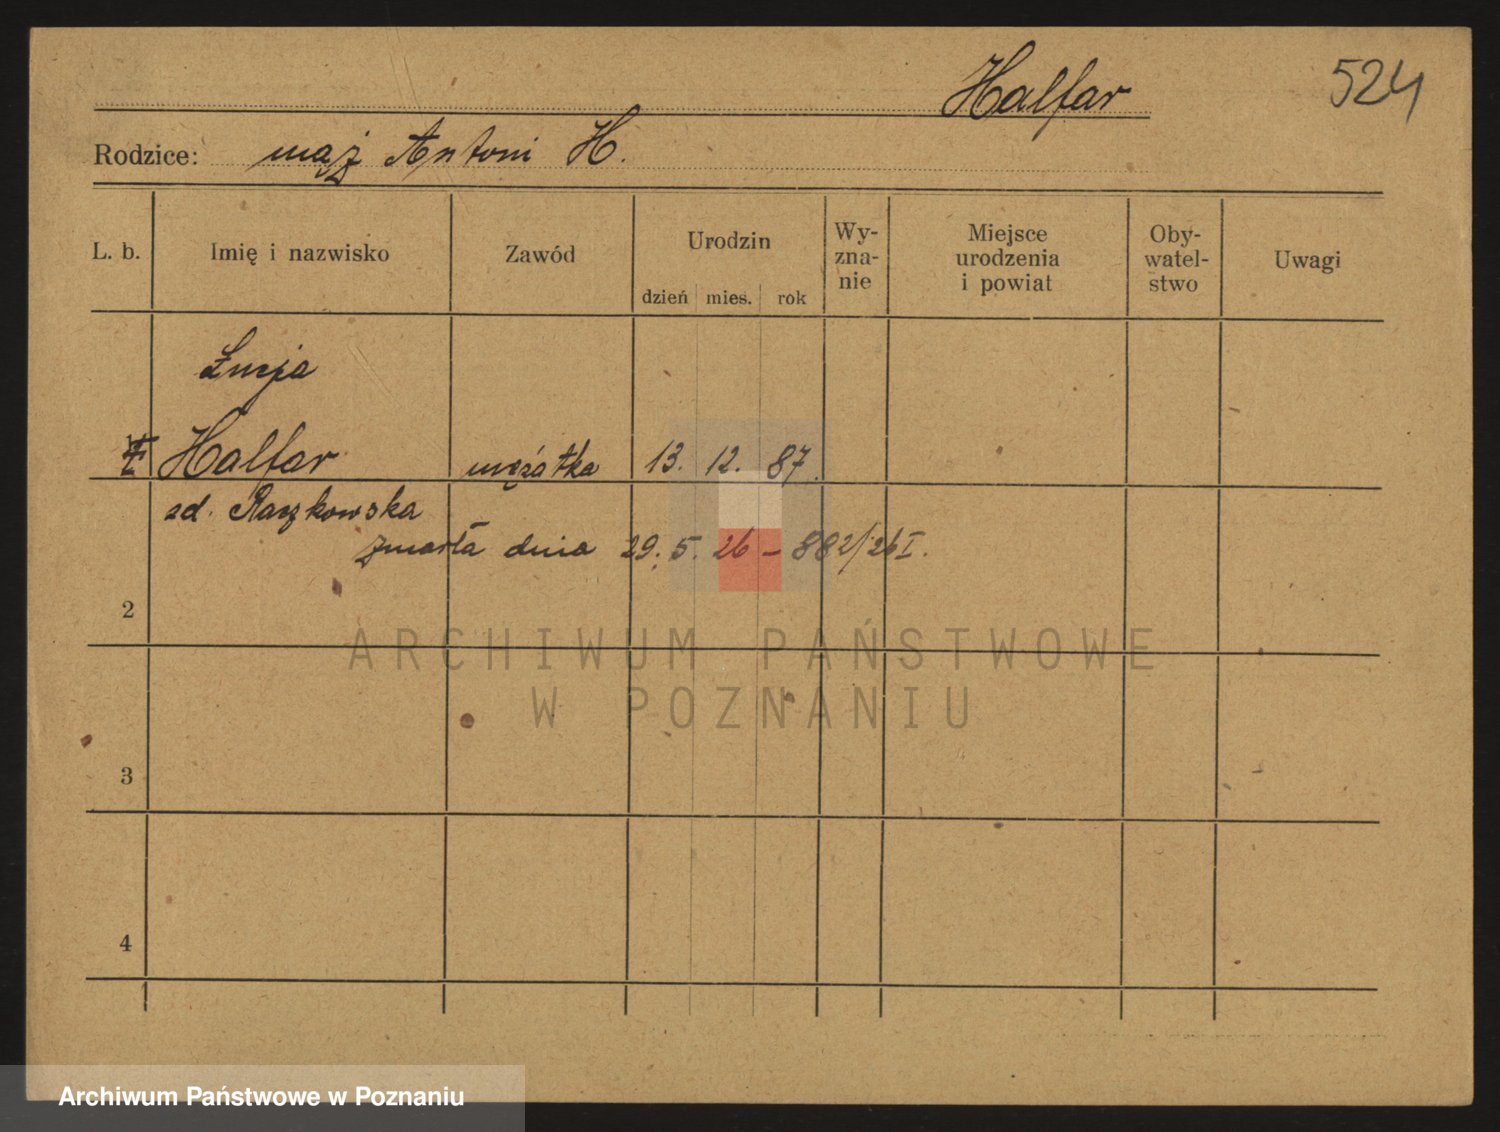 Halfar 524
Rodzice: mąż Antoni H.
L. b. Imię i nazwisko Zawód Urodzin dzień mies. rok Wy-zna-nie Miejsce urodzenia i powiat Oby-watel-stwo Uwagi
Łucja
Halfar mężatka 13. 12. 87.
zd. Raszkowska
zmarła dnia 29. 5. 26 – 882/26 I.
2
3
4
ARCHIWUM PAŃSTWOWE
W POZNANIU
Archiwum Państwowe w Poznaniu